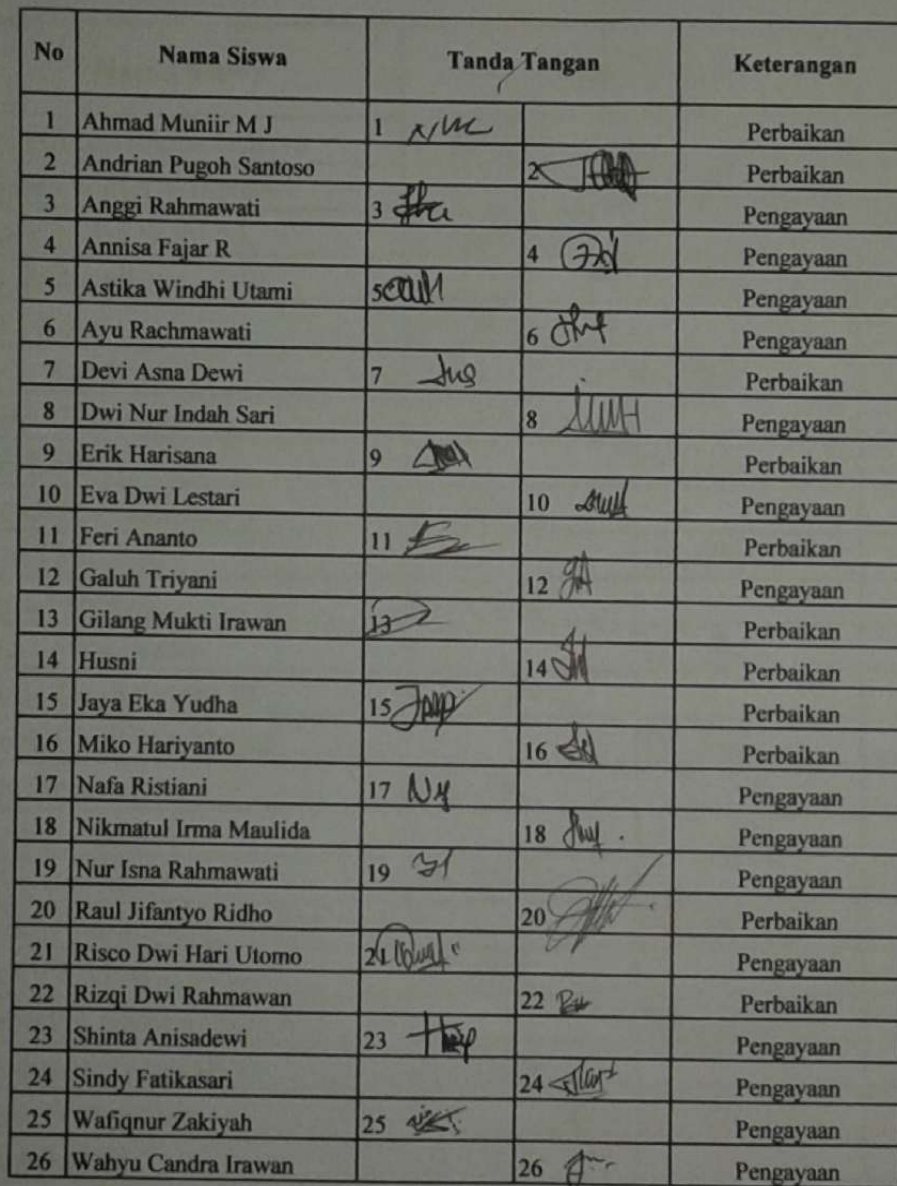 No Nama Siswa Tanda Tangan Keterangan
1 Ahmad Muniir M J 1 Perbaikan
2 Andrian Pugoh Santoso 2 Perbaikan
3 Anggi Rahmawati 3 Pengayaan
4 Annisa Fajar R 4 Pengayaan
5 Astika Windhi Utami 5 Pengayaan
6 Ayu Rachmawati 6 Pengayaan
7 Devi Asna Dewi 7 Perbaikan
8 Dwi Nur Indah Sari 8 Pengayaan
9 Erik Harisana 9 Perbaikan
10 Eva Dwi Lestari 10 Pengayaan
11 Feri Ananto 11 Perbaikan
12 Galuh Triyani 12 Pengayaan
13 Gilang Mukti Irawan 13 Perbaikan
14 Husni 14 Perbaikan
15 Jaya Eka Yudha 15 Perbaikan
16 Miko Hariyanto 16 Perbaikan
17 Nafa Ristiani 17 Pengayaan
18 Nikmatul Irma Maulida 18 Pengayaan
19 Nur Isna Rahmawati 19 Pengayaan
20 Raul Jifantyo Ridho 20 Perbaikan
21 Risco Dwi Hari Utomo 21 Pengayaan
22 Rizqi Dwi Rahmawan 22 Perbaikan
23 Shinta Anisadewi 23 Pengayaan
24 Sindy Fatikasari 24 Pengayaan
25 Wafiqnur Zakiyah 25 Pengayaan
26 Wahyu Candra Irawan 26 Pengayaan